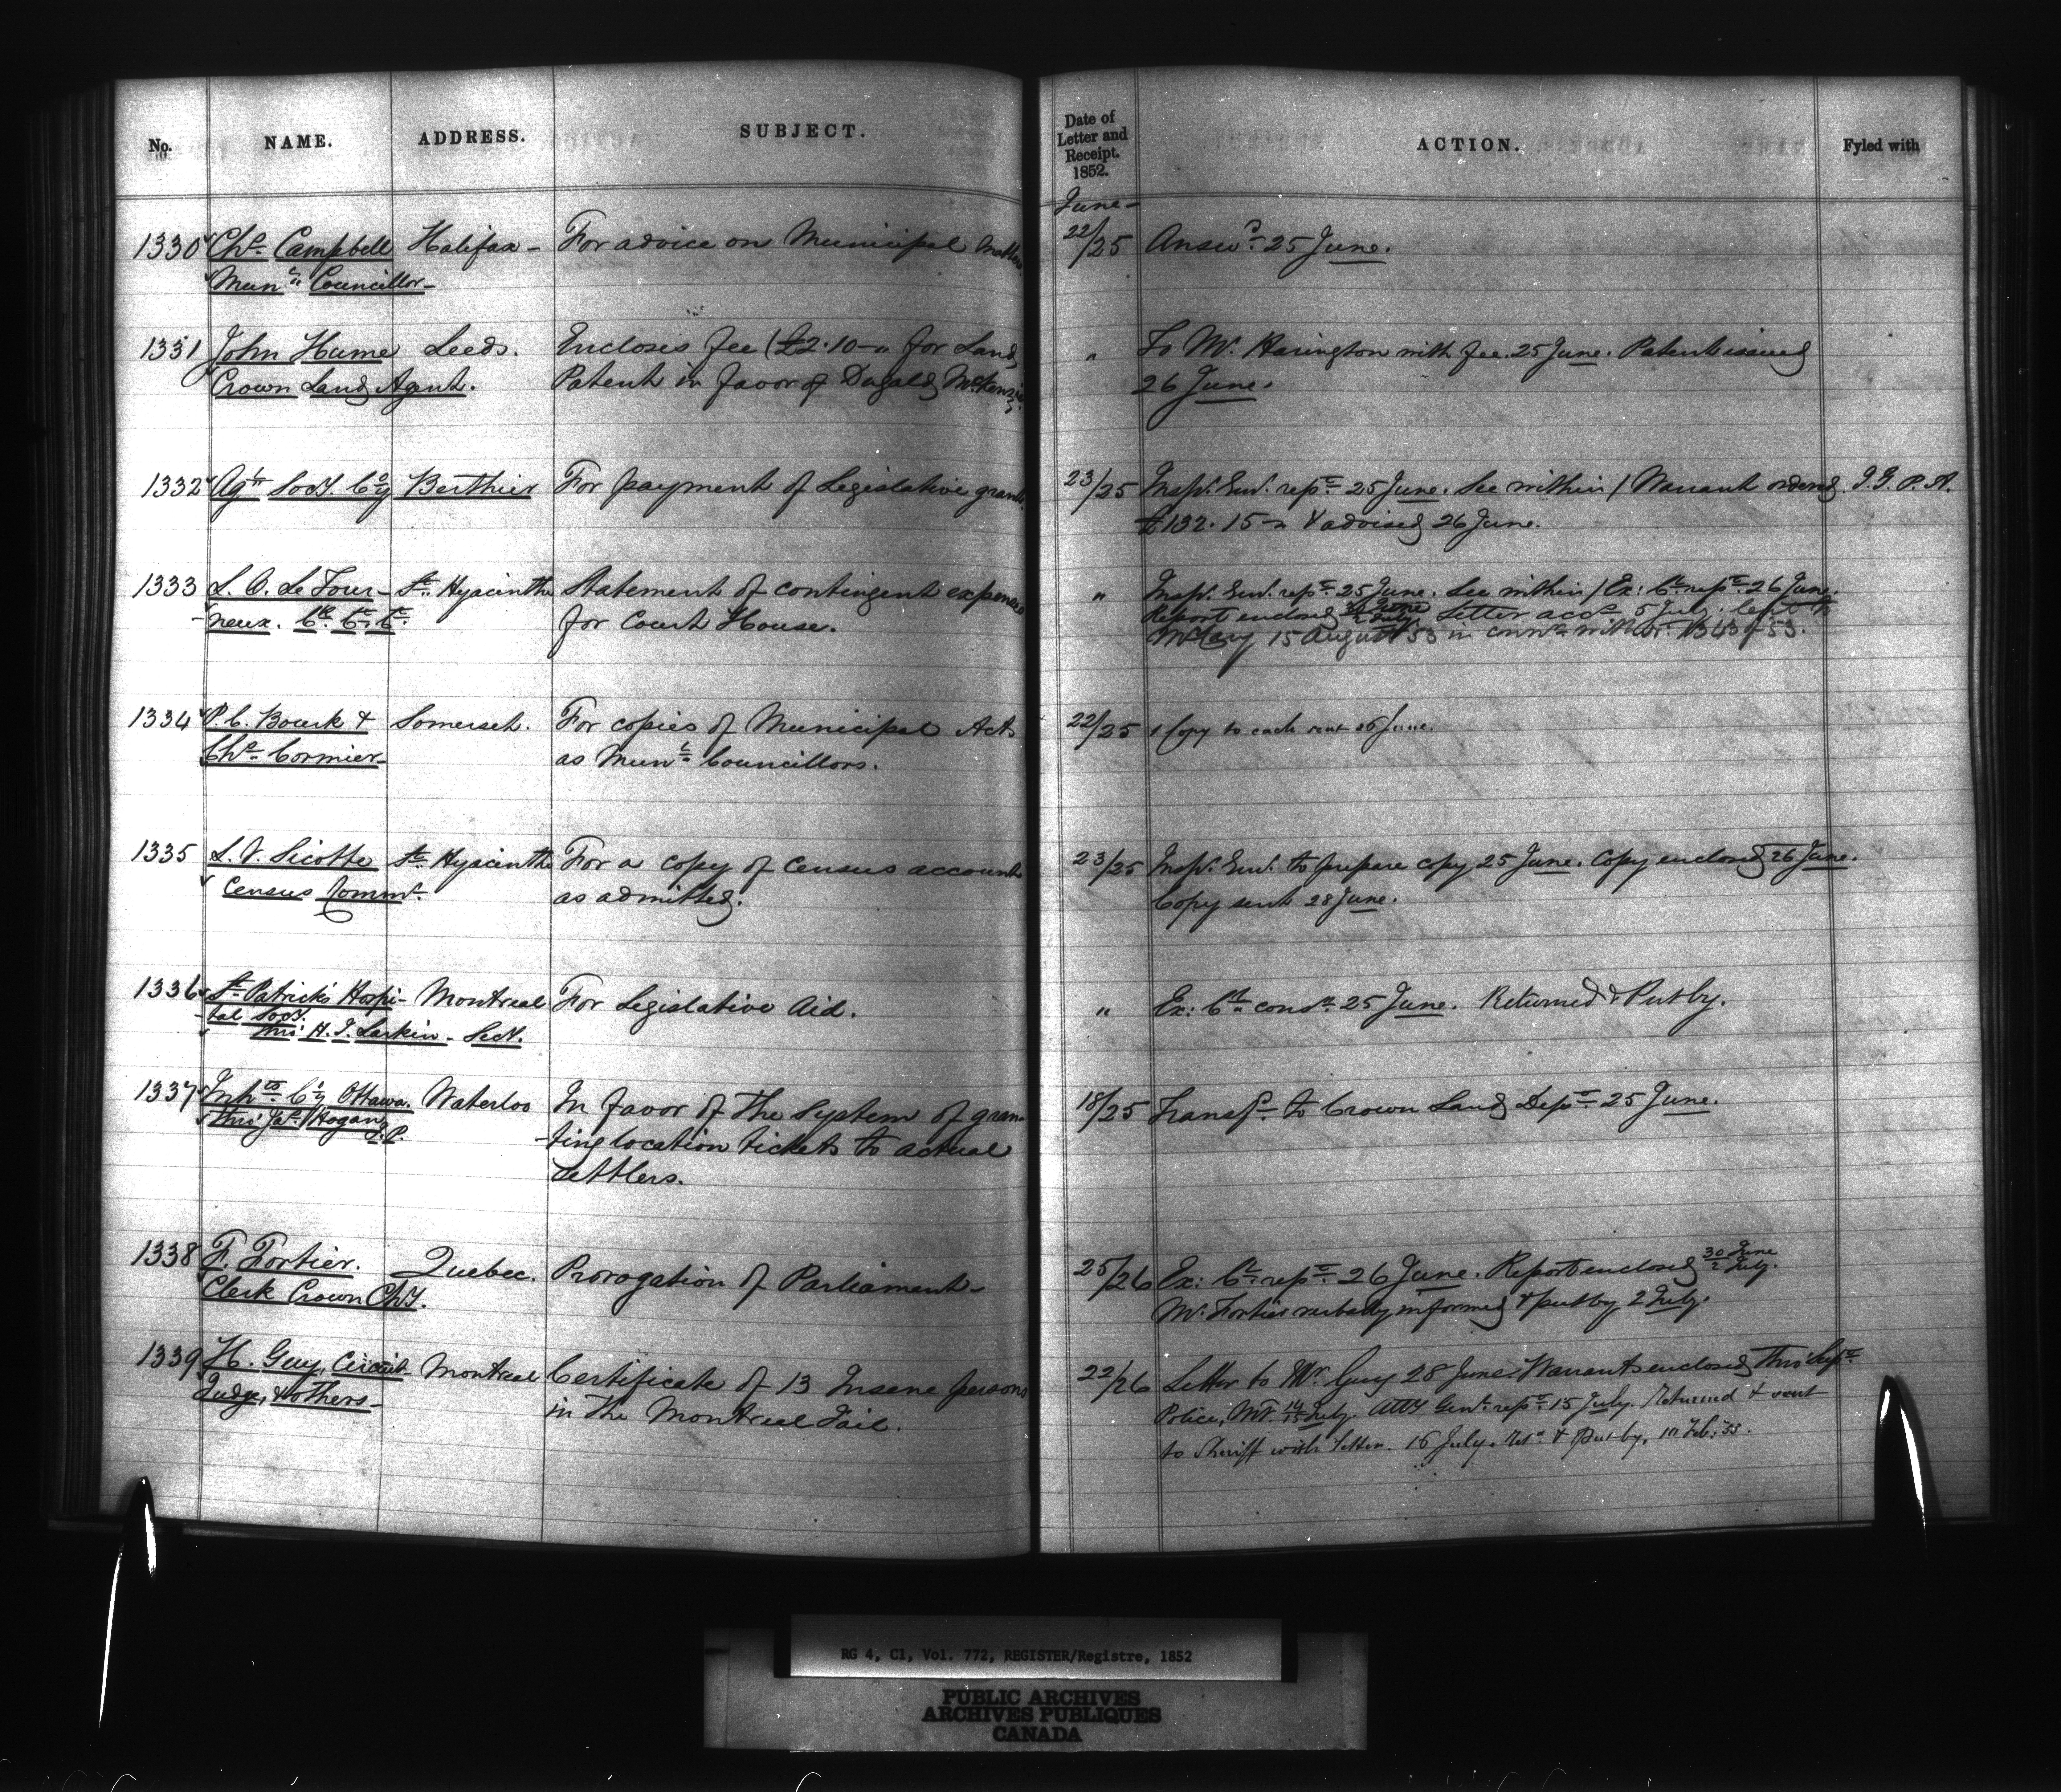 No. NAME. ADDRESS. SUBJECT.
Date of Letter and Receipt. 1852. ACTION. Fyled with
June -
1330 Chs Campbell Halifax - For advice on Municipal matters 22/25 Answd 25 June.
Munl Councillor -
1331 John Hume Leeds. Encloses fee (£2.10 - " for Land " To Mr. Harington with fee. 25 June. Patent issued
Crown Land Agent. Patent in favor of Dugald McKenzie 26 June.
1332 Agrl Socy. Coy Berthier For payment of Legislative grant. 23/25 Insp. Genl. repd 25 June. See within / Warrant ordered I. G. P. A.
£132. 15 - " & advised 26 June.
1333 L. O. LeTour- St. Hyacinthe Statement of contingent expenses " Insp. Genl. repd 25 June. See within / Ex: Cl repd 26 June.
neux. Ck. Ct. Ct. for Court House. Report enclosed 30 June 2 July. Letter accd 5 July. left
15 August 53 in with 1343 of 53.
1334 P. C. Bourk & Somerset. For copies of Municipal Acts 22/25 1 Copy to each sent 26 June.
Chs Cormier - as Munl Councillors.
1335 L. V. Sicotte St. Hyacinthe For a copy of Census accounts 23/25 Insp. Genl. to prepare copy 25 June. Copy enclosed 26 June.
Census Commr. as admitted. Copy sent 28 June.
1336 St Patrick's Hospi- Montreal For Legislative Aid. " Ex: Cl consd 25 June. Returned & Put by.
tal Socy.
thro' H. J. Larkin - Secy.
1337 Inhts Cy Ottawa. Waterloo In favor of the System of gran- 18/25 Transfd to Crown Land Dept 25 June.
thro' Jas. Hogan, J.P. -ting location tickets to actual
Settlers.
1338 F. Fortier. Quebec. Prorogation of Parliament - 25/26 Ex: Cl repd 26 June. Report enclosed 30 June 2 July.
Clerk Crown Chy. Mr. Fortier verbally informed & put by 2 July.
1339 H. Guy, Circuit Montreal Certificate of 13 Insane persons 22/26 Letter to Mr. Guy 28 June. Warrants enclosed thro' Supt
Judge, & others - in the Montreal Jail. Police, Ml. 14/15 July. Atty Genl. repd 15 July. Returned & sent
to Sheriff with letter. 16 July. Retd & Put by, 10 Feb: 53.
RG 4, C1, Vol. 772, REGISTER/Registre, 1852
PUBLIC ARCHIVES
ARCHIVES PUBLIQUES
CANADA